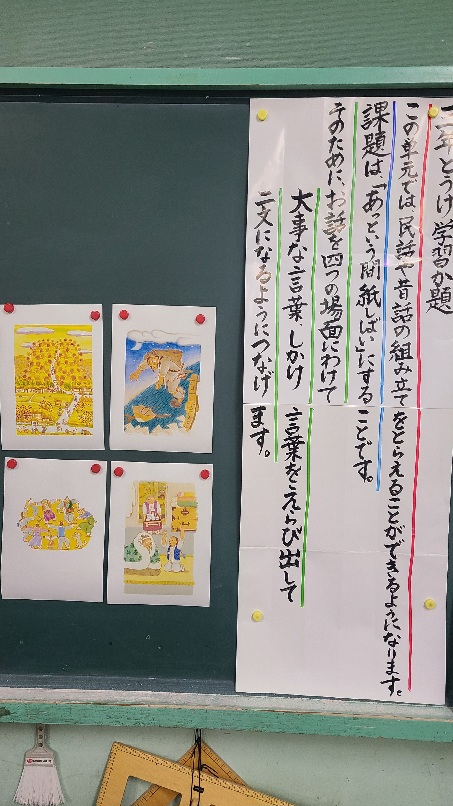 二年とうげ 学習か題
この単元では、民話や昔話の組み立てをとらえることができるようになります。
課題は「あっという間紙しばい」にすることです。
そのために、お話を四つの場面にわけて
大事な言葉、しかけ言葉をえらび出して
二文になるようにつなげます。